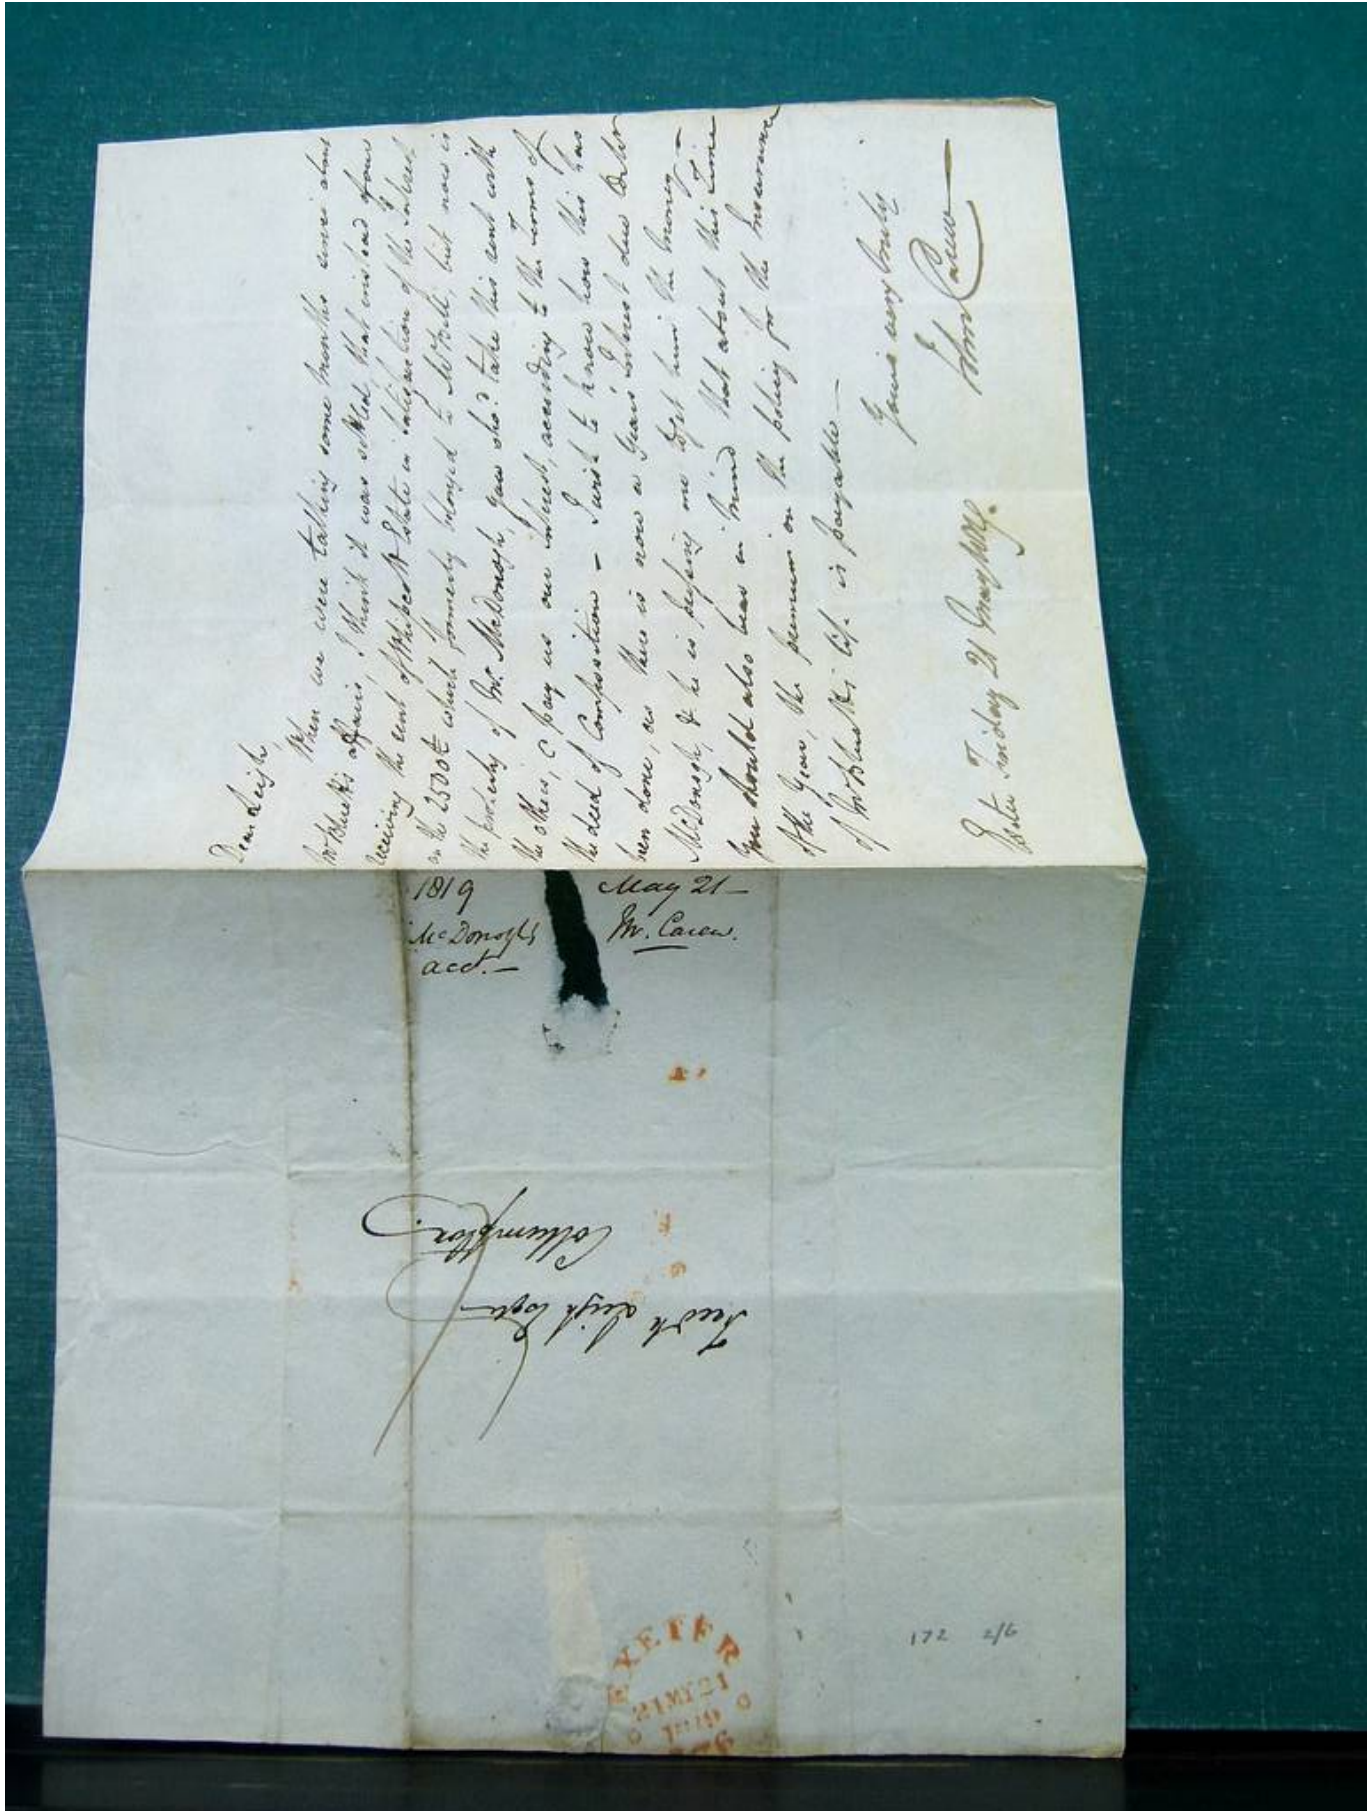 Dear Leigh,
When we were talking some months since abt
Mr Bluett's affairs, I think it was settled, that instead of our
receiving the rent of Estate in satisfaction of the Interest
on the 2500£ which formerly belonged to Mr Hill, but now is
the property of Mr. McDonogh, you shod. take this rent with
the others, & pay us our interest, according to the Terms of
the deed of Composition – I wish to know how this has
been done, as there is now a Years interest due to Mr
McDonogh, & he is pressing me to get him the money –
You should also bear in mind that about this time
of the Year, the premium on the policy for the Insurance
of Mr Bluett's life is payable –
Yours very truly
John Carew
Exeter Friday 21 May 1819.
1819 May 21 –
McDonogh's Mr. Carew.
acct. –
Leigh Esqr
Collumpton.
EXETER
21 MY 21
1819
176
172 2/6